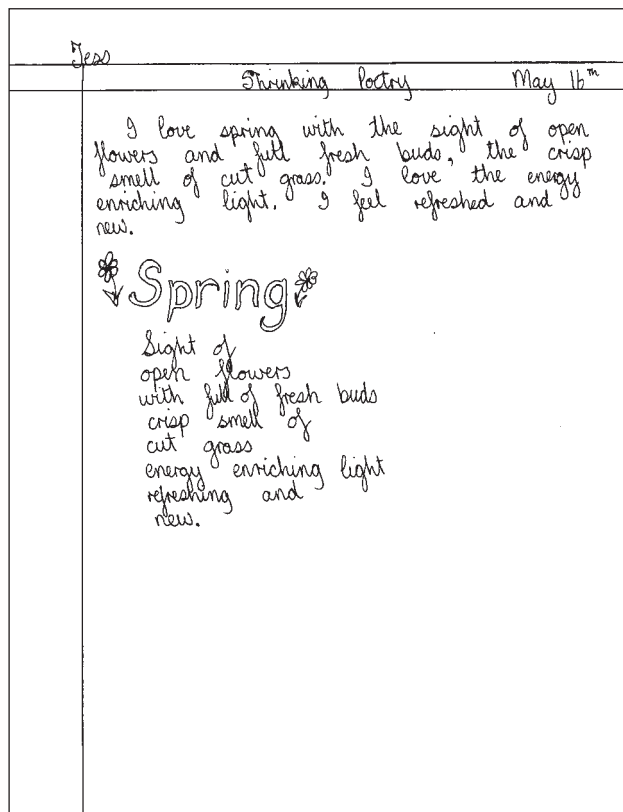 Jess
Shrinking Poetry May 16th
I love spring with the sight of open
flowers and full fresh buds, the crisp
smell of cut grass. I love the energy
enriching light. I feel refreshed and
new.
Spring
Sight of
open flowers
with full of fresh buds
crisp smell of
cut grass
energy enriching light
refreshing and
new.